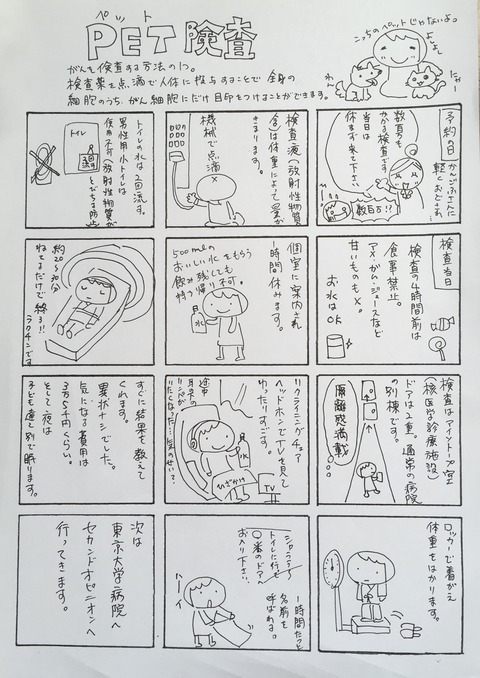 ペット
PET検査
こっちのペットじゃないよ。
よしよし
わん
にゃー
がんを検査する方法の1つ。
検査薬を点滴で人体に投与することで全身の
細胞のうち、がん細胞にだけ目印をつけることができます。
予約の日
かんごふさんに
軽くおどされ…
数百万も
かかる検査です。
当日は
休まず来て下さい
数百万!!
検査当日
検査の4時間前は
食事禁止。
アメ・ガム・ジュースなど
甘いものも×。
お水はOK
検査はアイソトープ室
(核医学診療施設)
ドアは2重。通常の病院
の別棟です。
隔離感満載
ロッカーで着がえ
体重をはかります。
検査液(放射性物質
含)は体重によって量が
きまります。
機械で点滴
個室に案内され
1時間休みます。
500mlの
おいしい水をもらう
飲み残しても
持ち帰り不可。
水
リクライニングチェア
ヘッドホンでTVを見て
ゆったりすごす。
途中
耳の下の
リンパが
いたくなった…気のせい?
水
ひざかけ
TV
1時間たつと
名前を
呼ばれる。
トイレに行き
〇番のドアへ
お入り下さい。
ハーイ
トイレの水は2回流す。
男性用小トイレは
使用不可(放射性物質が
とびちる防止)
トイレ
2回
流す
約20~30分
ねてるだけで終る!!
ラクチンです
すぐに結果を教えて
くれます。
異状ナシでした。
気になる費用は
3万5千円くらい。
そして夜は
子ども達と別で眠ります。
次は
東京大学病院へ
セカンドオピニオンへ
行ってきます。